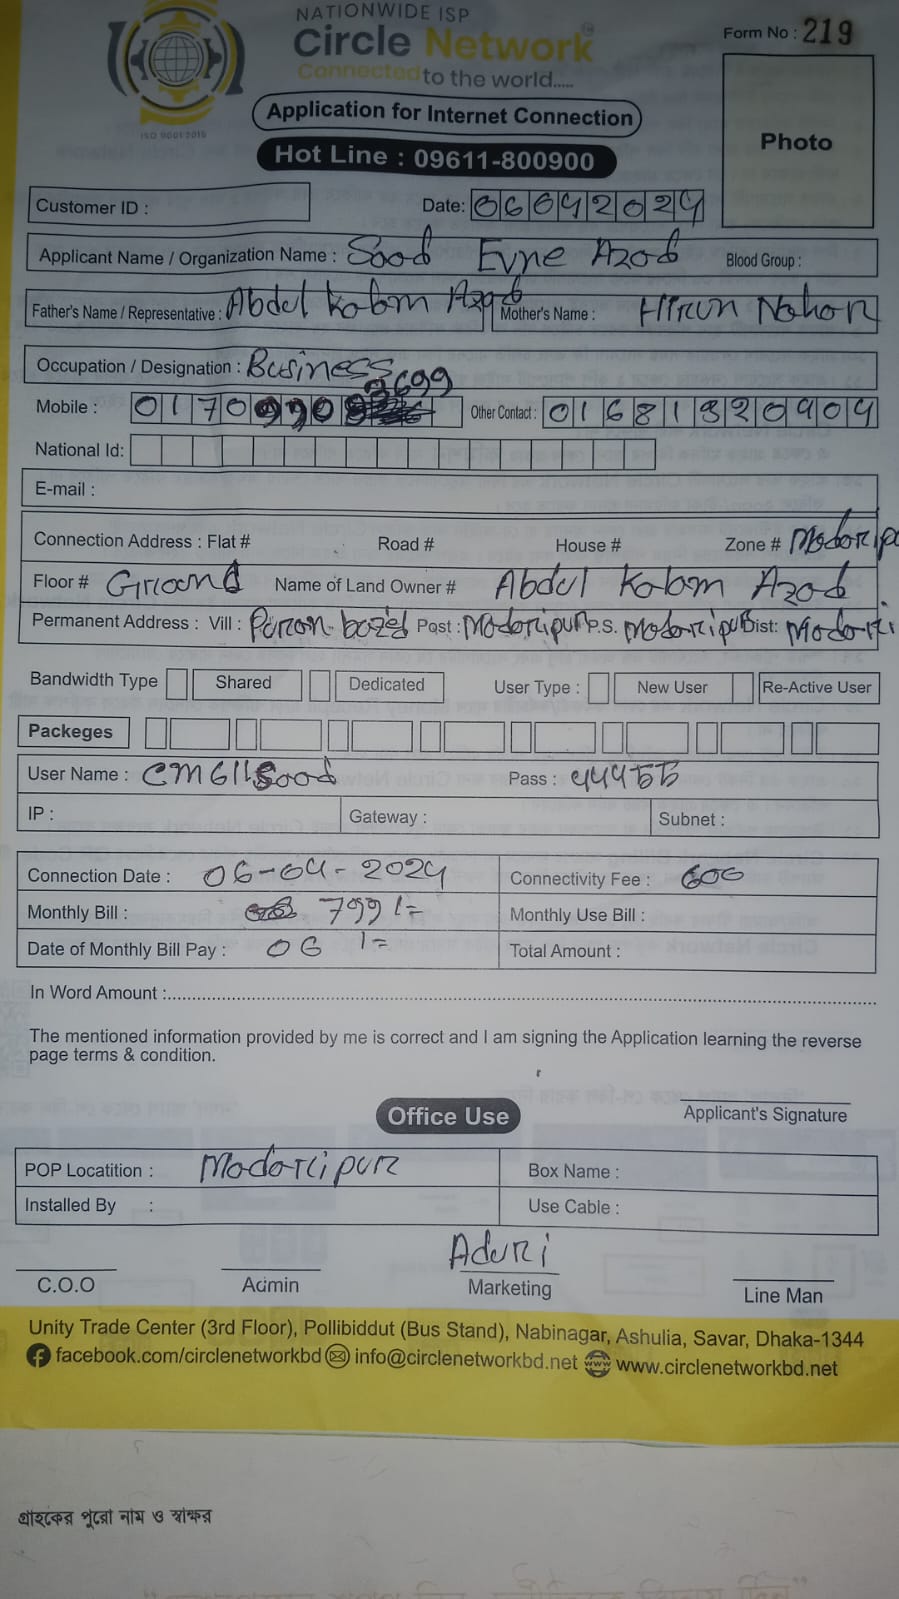 NATIONWIDE ISP
Circle Network
Connected to the world.....
ISO 9001:2015
Form No : 219
Application for Internet Connection
Photo
Hot Line : 09611-800900
Customer ID :
Date: 06042024
Applicant Name / Organization Name : Saad Evne Azad Blood Group :
Father's Name / Representative : Abdul Kalam Azad Mother's Name : Hirun Nahar
Occupation / Designation : Business
Mobile : 0170 Other Contact : 01681320904
National Id:
E-mail :
Connection Address : Flat # Road # House # Zone # Madaripu
Floor # Ground Name of Land Owner # Abdul Kalam Azad
Permanent Address : Vill : Puran bazed Post : Madaripur P.S. Madaripur Dist: Madari
Bandwidth Type Shared Dedicated User Type : New User Re-Active User
Packeges
User Name : CMG11Saad Pass : 44455
IP : Gateway : Subnet :
Connection Date : 06-04-2024 Connectivity Fee : 600
Monthly Bill : 799/= Monthly Use Bill :
Date of Monthly Bill Pay : 06 /= Total Amount :
In Word Amount :
The mentioned information provided by me is correct and I am signing the Application learning the reverse
page terms & condition.
Office Use
Applicant's Signature
POP Locatition : Madaripur Box Name :
Installed By : Use Cable :
Aduri
C.O.O Admin Marketing Line Man
Unity Trade Center (3rd Floor), Pollibiddut (Bus Stand), Nabinagar, Ashulia, Savar, Dhaka-1344
facebook.com/circlenetworkbd info@circlenetworkbd.net www.circlenetworkbd.net
গ্রাহকের পুরো নাম ও স্বাক্ষর